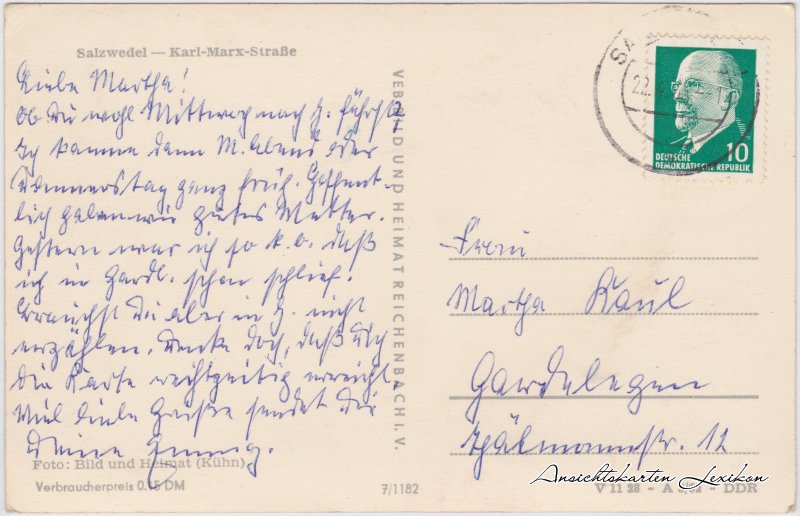 Salzwedel — Karl-Marx-Straße
Liebe Martha!
Ob Du wohl Mittwoch nach H. fährst?
Ich komme dann M. Abend oder
Donnerstag ganz früh. Hoffent-
lich haben wir gutes Wetter.
Gestern war ich so k.o. daß
ich in Gardl. schon schlief.
Brauchst Du aber in H. nicht
erzählen. Denke doch, daß Dich
die Karte rechtzeitig erreicht.
Viel liebe Grüße sendet Dir
Deine
Foto: Bild und Heimat (Kühn)
Verbraucherpreis 0,15 DM
7/1182
VEB BILD UND HEIMAT REICHENBACH I. V.
10
DEUTSCHE
DEMOKRATISCHE REPUBLIK
Frau
Martha Kaul
Gardelegen
Thälmannstr. 12
V 11 28 - A - DDR
Ansichtskarten Lexikon